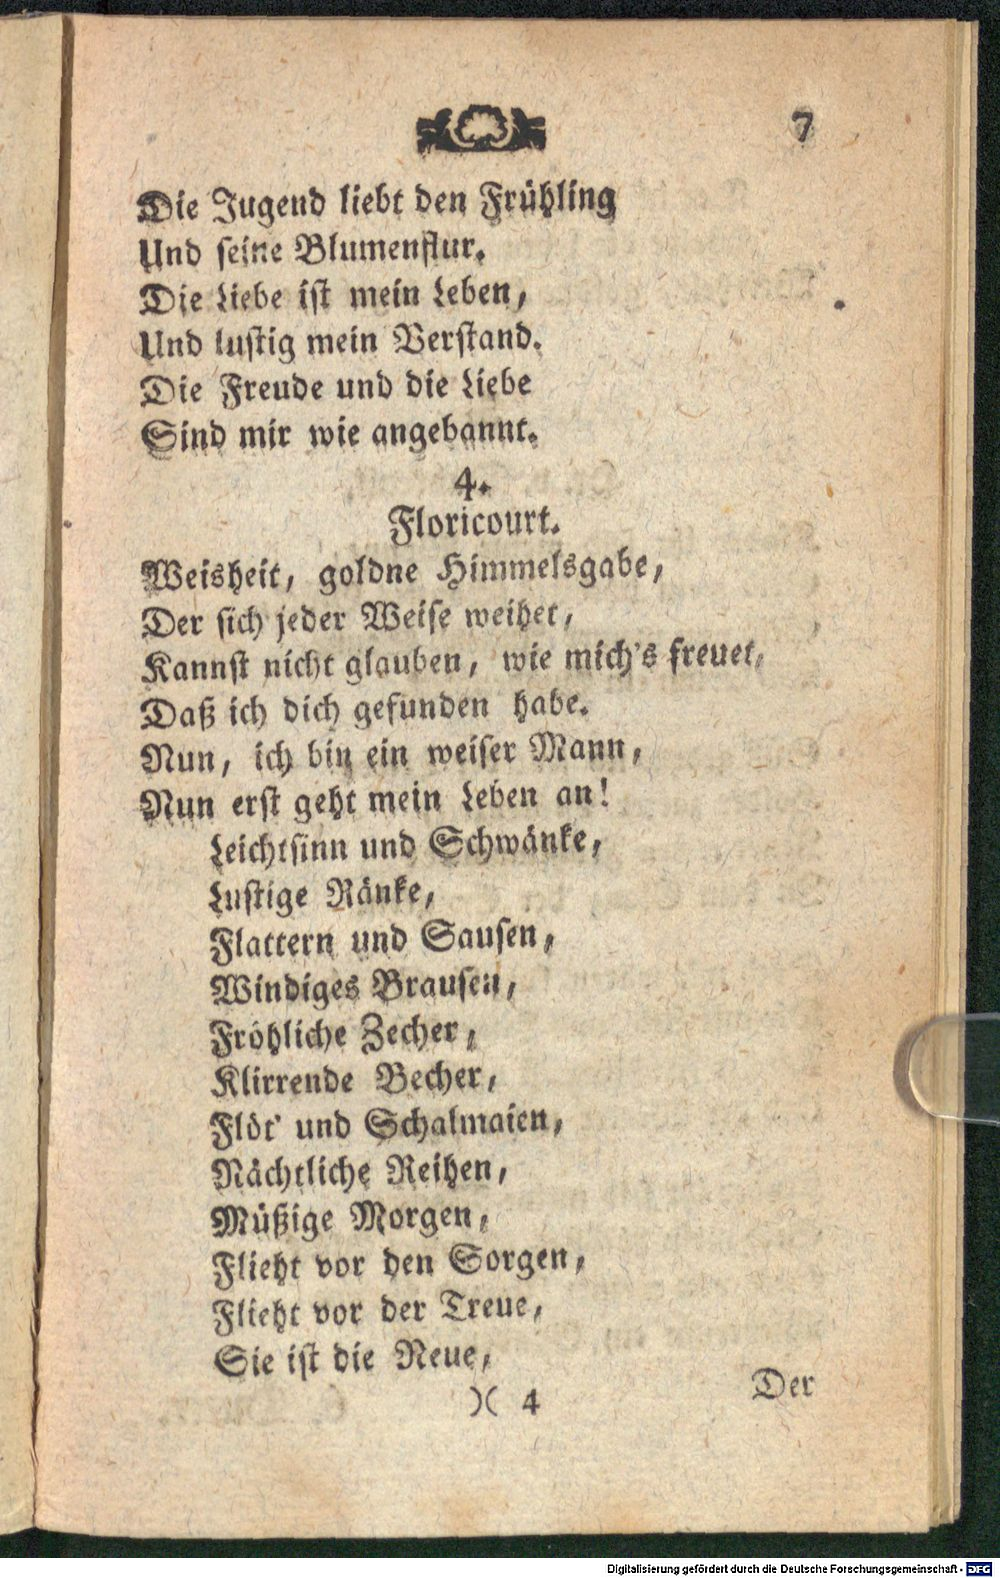 7
Die Jugend liebt den Frühling
Und seine Blumenflur.
Die Liebe ist mein Leben,
Und lustig mein Verstand.
Die Freude und die Liebe
Sind mir wie angebannt.
4.
Floricourt.
Weisheit, goldne Himmelsgabe,
Der sich jeder Weise weihet,
Kannst nicht glauben, wie mich's freuet,
Daß ich dich gefunden habe.
Nun, ich bin ein weiser Mann,
Nun erst geht mein Leben an!
Leichtsinn und Schwänke,
Lustige Ränke,
Flattern und Sausen,
Windiges Brausen,
Fröhliche Zecher,
Klirrende Becher,
Flöt' und Schalmaien,
Nächtliche Reihen,
Müßige Morgen,
Flieht vor den Sorgen,
Flieht vor der Treue,
Sie ist die Neue,
)( 4
Der
Digitalisierung gefördert durch die Deutsche Forschungsgemeinschaft - DFG